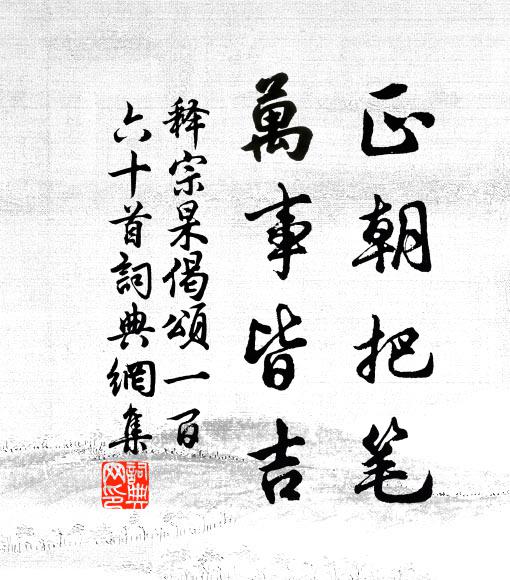 正朝把笔
萬事皆吉
释宗杲偈頌一百
六十首詞典網集
詞典網印